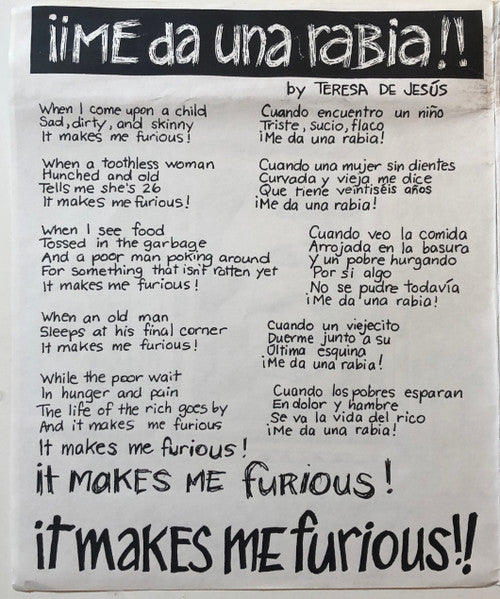 ¡¡ME da una rabia!!
by TERESA DE JESÚS
When I come upon a child
Sad, dirty, and skinny
It makes me furious!
When a toothless woman
Hunched and old
Tells me she's 26
It makes me furious!
When I see food
Tossed in the garbage
And a poor man poking around
For something that isn't rotten yet
It makes me furious!
When an old man
Sleeps at his final corner
It makes me furious!
While the poor wait
In hunger and pain
The life of the rich goes by
And it makes me furious
It makes me furious!
it MAKES ME fuRIOUS!
it MAKES ME furious!!
Cuando encuentro un niño
Triste, sucio, flaco
¡Me da una rabia!
Cuando una mujer sin dientes
Curvada y vieja me dice
Que tiene veintiséis años
¡Me da una rabia!
Cuando veo la comida
Arrojada en la basura
Y un pobre hurgando
Por si algo
No se pudre todavía
¡Me da una rabia!
Cuando un viejecito
Duerme junto a su
Última esquina
¡Me da una rabia!
Cuando los pobres esparan
En dolor y hambre
Se va la vida del rico
¡Me da una rabia!